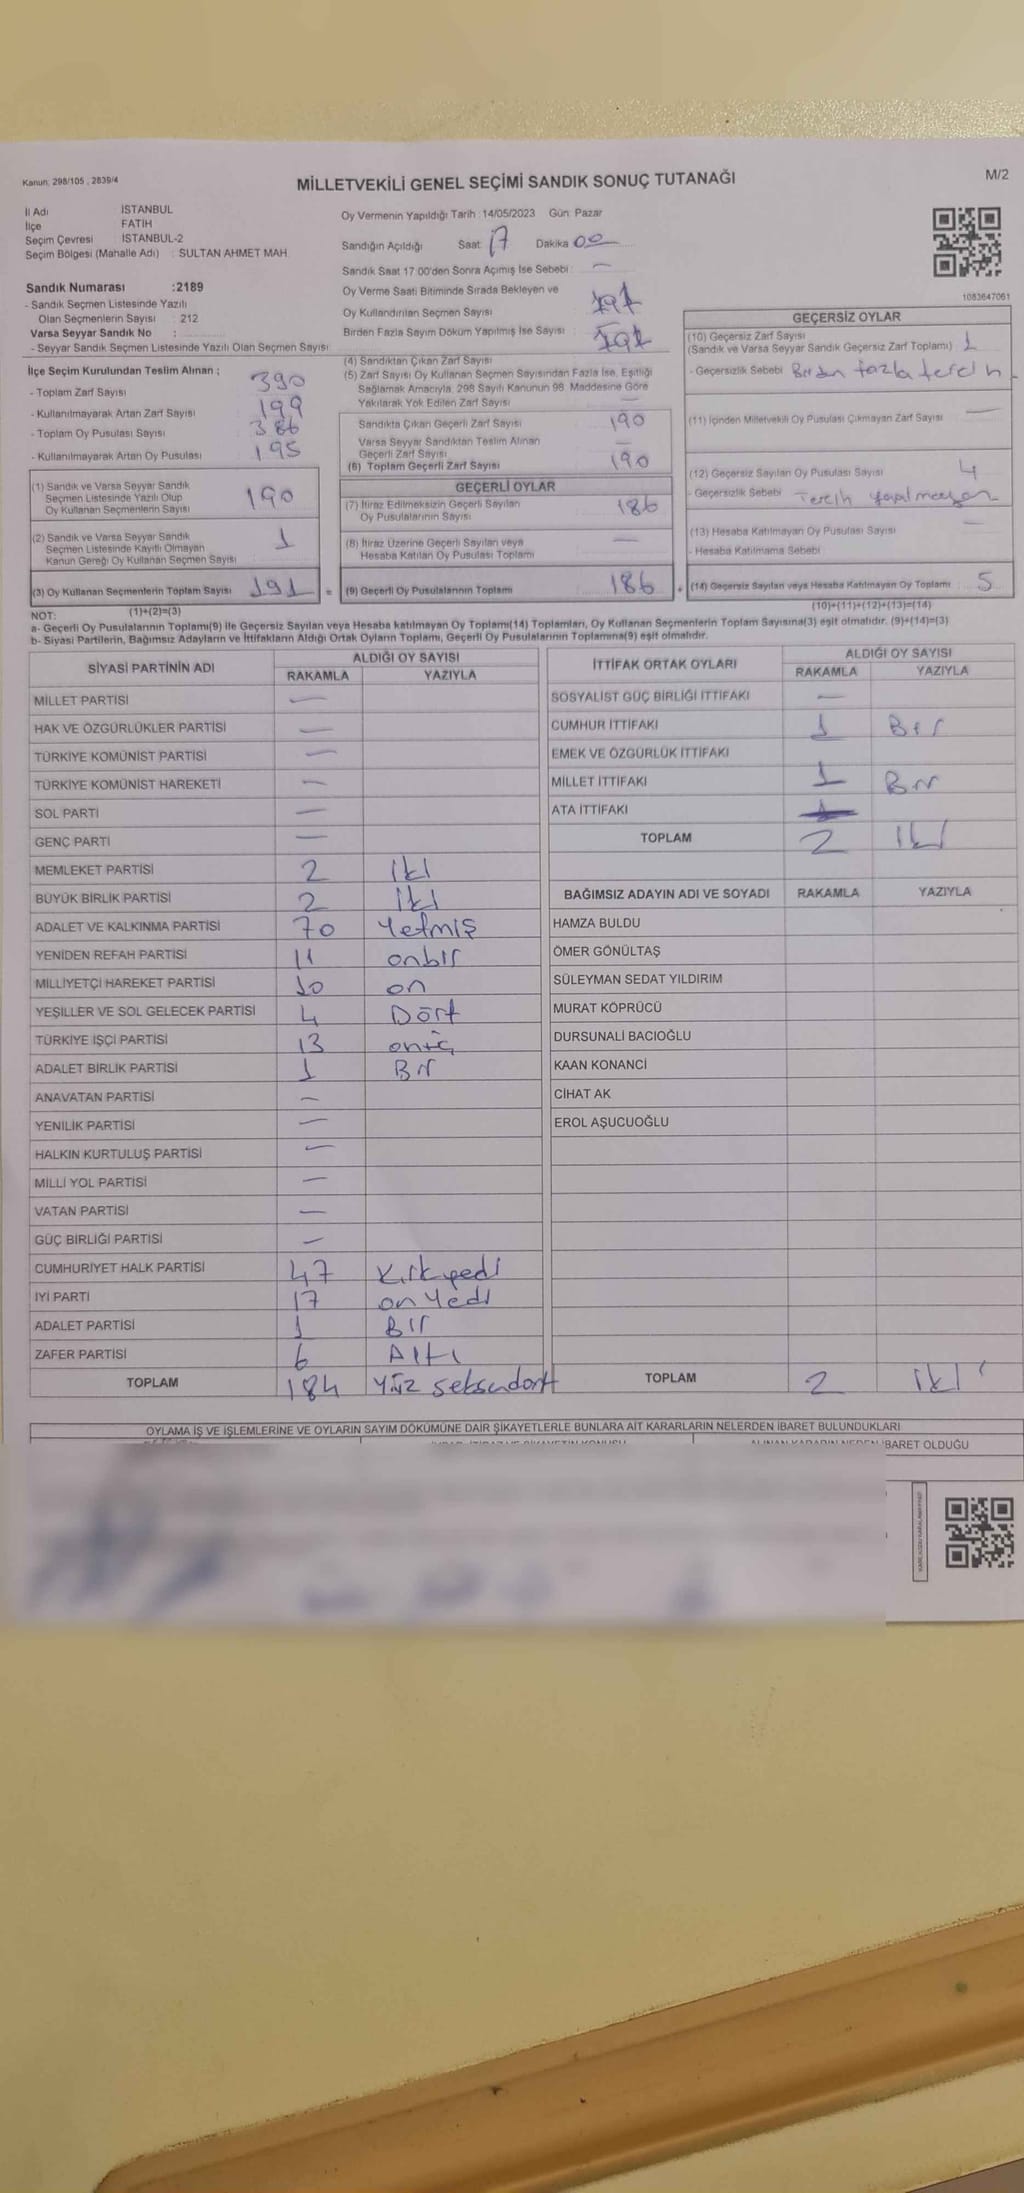 Kanun; 298/105 , 2839/4
MİLLETVEKİLİ GENEL SEÇİMİ SANDIK SONUÇ TUTANAĞI
M/2
İl Adı İSTANBUL
İlçe FATİH
Seçim Çevresi İSTANBUL-2
Seçim Bölgesi (Mahalle Adı) : SULTAN AHMET MAH.
Sandık Numarası :2189
- Sandık Seçmen Listesinde Yazılı
Olan Seçmenlerin Sayısı : 212
Varsa Seyyar Sandık No :
- Seyyar Sandık Seçmen Listesinde Yazılı Olan Seçmen Sayısı
İlçe Seçim Kurulundan Teslim Alınan ;
- Toplam Zarf Sayısı 390
- Kullanılmayarak Artan Zarf Sayısı 199
- Toplam Oy Pusulası Sayısı 386
- Kullanılmayarak Artan Oy Pusulası 195
(1) Sandık ve Varsa Seyyar Sandık
Seçmen Listesinde Yazılı Olup
Oy Kullanan Seçmenlerin Sayısı 190
(2) Sandık ve Varsa Seyyar Sandık
Seçmen Listesinde Kayıtlı Olmayan
Kanun Gereği Oy Kullanan Seçmen Sayısı 1
(3) Oy Kullanan Seçmenlerin Toplam Sayısı 191 =
(1)+(2)=(3)
Oy Vermenin Yapıldığı Tarih : 14/05/2023 Gün: Pazar
Sandığın Açıldığı Saat 17 Dakika 00
Sandık Saat 17:00'den Sonra Açılmış İse Sebebi : —
Oy Verme Saati Bitiminde Sırada Bekleyen ve
Oy Kullandırılan Seçmen Sayısı
Birden Fazla Sayım Döküm Yapılmış İse Sayısı :
(4) Sandıktan Çıkan Zarf Sayısı
(5) Zarf Sayısı Oy Kullanan Seçmen Sayısından Fazla İse, Eşitliği
Sağlamak Amacıyla, 298 Sayılı Kanunun 98. Maddesine Göre
Yakılarak Yok Edilen Zarf Sayısı —
Sandıkta Çıkan Geçerli Zarf Sayısı 190
Varsa Seyyar Sandıktan Teslim Alınan
Geçerli Zarf Sayısı —
(6) Toplam Geçerli Zarf Sayısı 190
GEÇERLİ OYLAR
(7) İtiraz Edilmeksizin Geçerli Sayılan
Oy Pusulalarının Sayısı 186
(8) İtiraz Üzerine Geçerli Sayılan veya
Hesaba Katılan Oy Pusulası Toplamı —
(9) Geçerli Oy Pusulalarının Toplamı 186 +
1083647061
GEÇERSİZ OYLAR
(10) Geçersiz Zarf Sayısı
(Sandık ve Varsa Seyyar Sandık Geçersiz Zarf Toplamı) 1
- Geçersizlik Sebebi Birden fazla tercih
(11) İçinden Milletvekili Oy Pusulası Çıkmayan Zarf Sayısı —
(12) Geçersiz Sayılan Oy Pusulası Sayısı 4
- Geçersizlik Sebebi Tercih yapılmayan
(13) Hesaba Katılmayan Oy Pusulası Sayısı —
- Hesaba Katılmama Sebebi
(14) Geçersiz Sayılan veya Hesaba Katılmayan Oy Toplamı 5
(10)+(11)+(12)+(13)=(14)
NOT:
a- Geçerli Oy Pusulalarının Toplamı(9) ile Geçersiz Sayılan veya Hesaba katılmayan Oy Toplamı(14) Toplamları, Oy Kullanan Seçmenlerin Toplam Sayısına(3) eşit olmalıdır. (9)+(14)=(3)
b- Siyasi Partilerin, Bağımsız Adayların ve İttifakların Aldığı Ortak Oyların Toplamı, Geçerli Oy Pusulalarının Toplamına(9) eşit olmalıdır.
SİYASİ PARTİNİN ADI ALDIĞI OY SAYISI
RAKAMLA YAZIYLA
MİLLET PARTİSİ —
HAK VE ÖZGÜRLÜKLER PARTİSİ —
TÜRKİYE KOMÜNİST PARTİSİ —
TÜRKİYE KOMÜNİST HAREKETİ —
SOL PARTİ —
GENÇ PARTİ —
MEMLEKET PARTİSİ 2 iki
BÜYÜK BİRLİK PARTİSİ 2 iki
ADALET VE KALKINMA PARTİSİ 70 Yetmiş
YENİDEN REFAH PARTİSİ 11 onbir
MİLLİYETÇİ HAREKET PARTİSİ 10 on
YEŞİLLER VE SOL GELECEK PARTİSİ 4 Dört
TÜRKİYE İŞÇİ PARTİSİ 13 onüç
ADALET BİRLİK PARTİSİ 1 Bir
ANAVATAN PARTİSİ —
YENİLİK PARTİSİ —
HALKIN KURTULUŞ PARTİSİ —
MİLLİ YOL PARTİSİ —
VATAN PARTİSİ —
GÜÇ BİRLİĞİ PARTİSİ —
CUMHURİYET HALK PARTİSİ 47 Kırkyedi
İYİ PARTİ 17 on Yedi
ADALET PARTİSİ 1 Bir
ZAFER PARTİSİ 6 Altı
TOPLAM 184 Yüz seksendört
İTTİFAK ORTAK OYLARI ALDIĞI OY SAYISI
RAKAMLA YAZIYLA
SOSYALİST GÜÇ BİRLİĞİ İTTİFAKI —
CUMHUR İTTİFAKI 1 Bir
EMEK VE ÖZGÜRLÜK İTTİFAKI
MİLLET İTTİFAKI 1 Bir
ATA İTTİFAKI
TOPLAM 2 iki
BAĞIMSIZ ADAYIN ADI VE SOYADI RAKAMLA YAZIYLA
HAMZA BULDU
ÖMER GÖNÜLTAŞ
SÜLEYMAN SEDAT YILDIRIM
MURAT KÖPRÜCÜ
DURSUNALİ BACIOĞLU
KAAN KONANCİ
CİHAT AK
EROL AŞUCUOĞLU
TOPLAM 2 iki
OYLAMA İŞ VE İŞLEMLERİNE VE OYLARIN SAYIM DÖKÜMÜNE DAİR ŞİKAYETLERLE BUNLARA AİT KARARLARIN NELERDEN İBARET BULUNDUKLARI
İBARET OLDUĞU